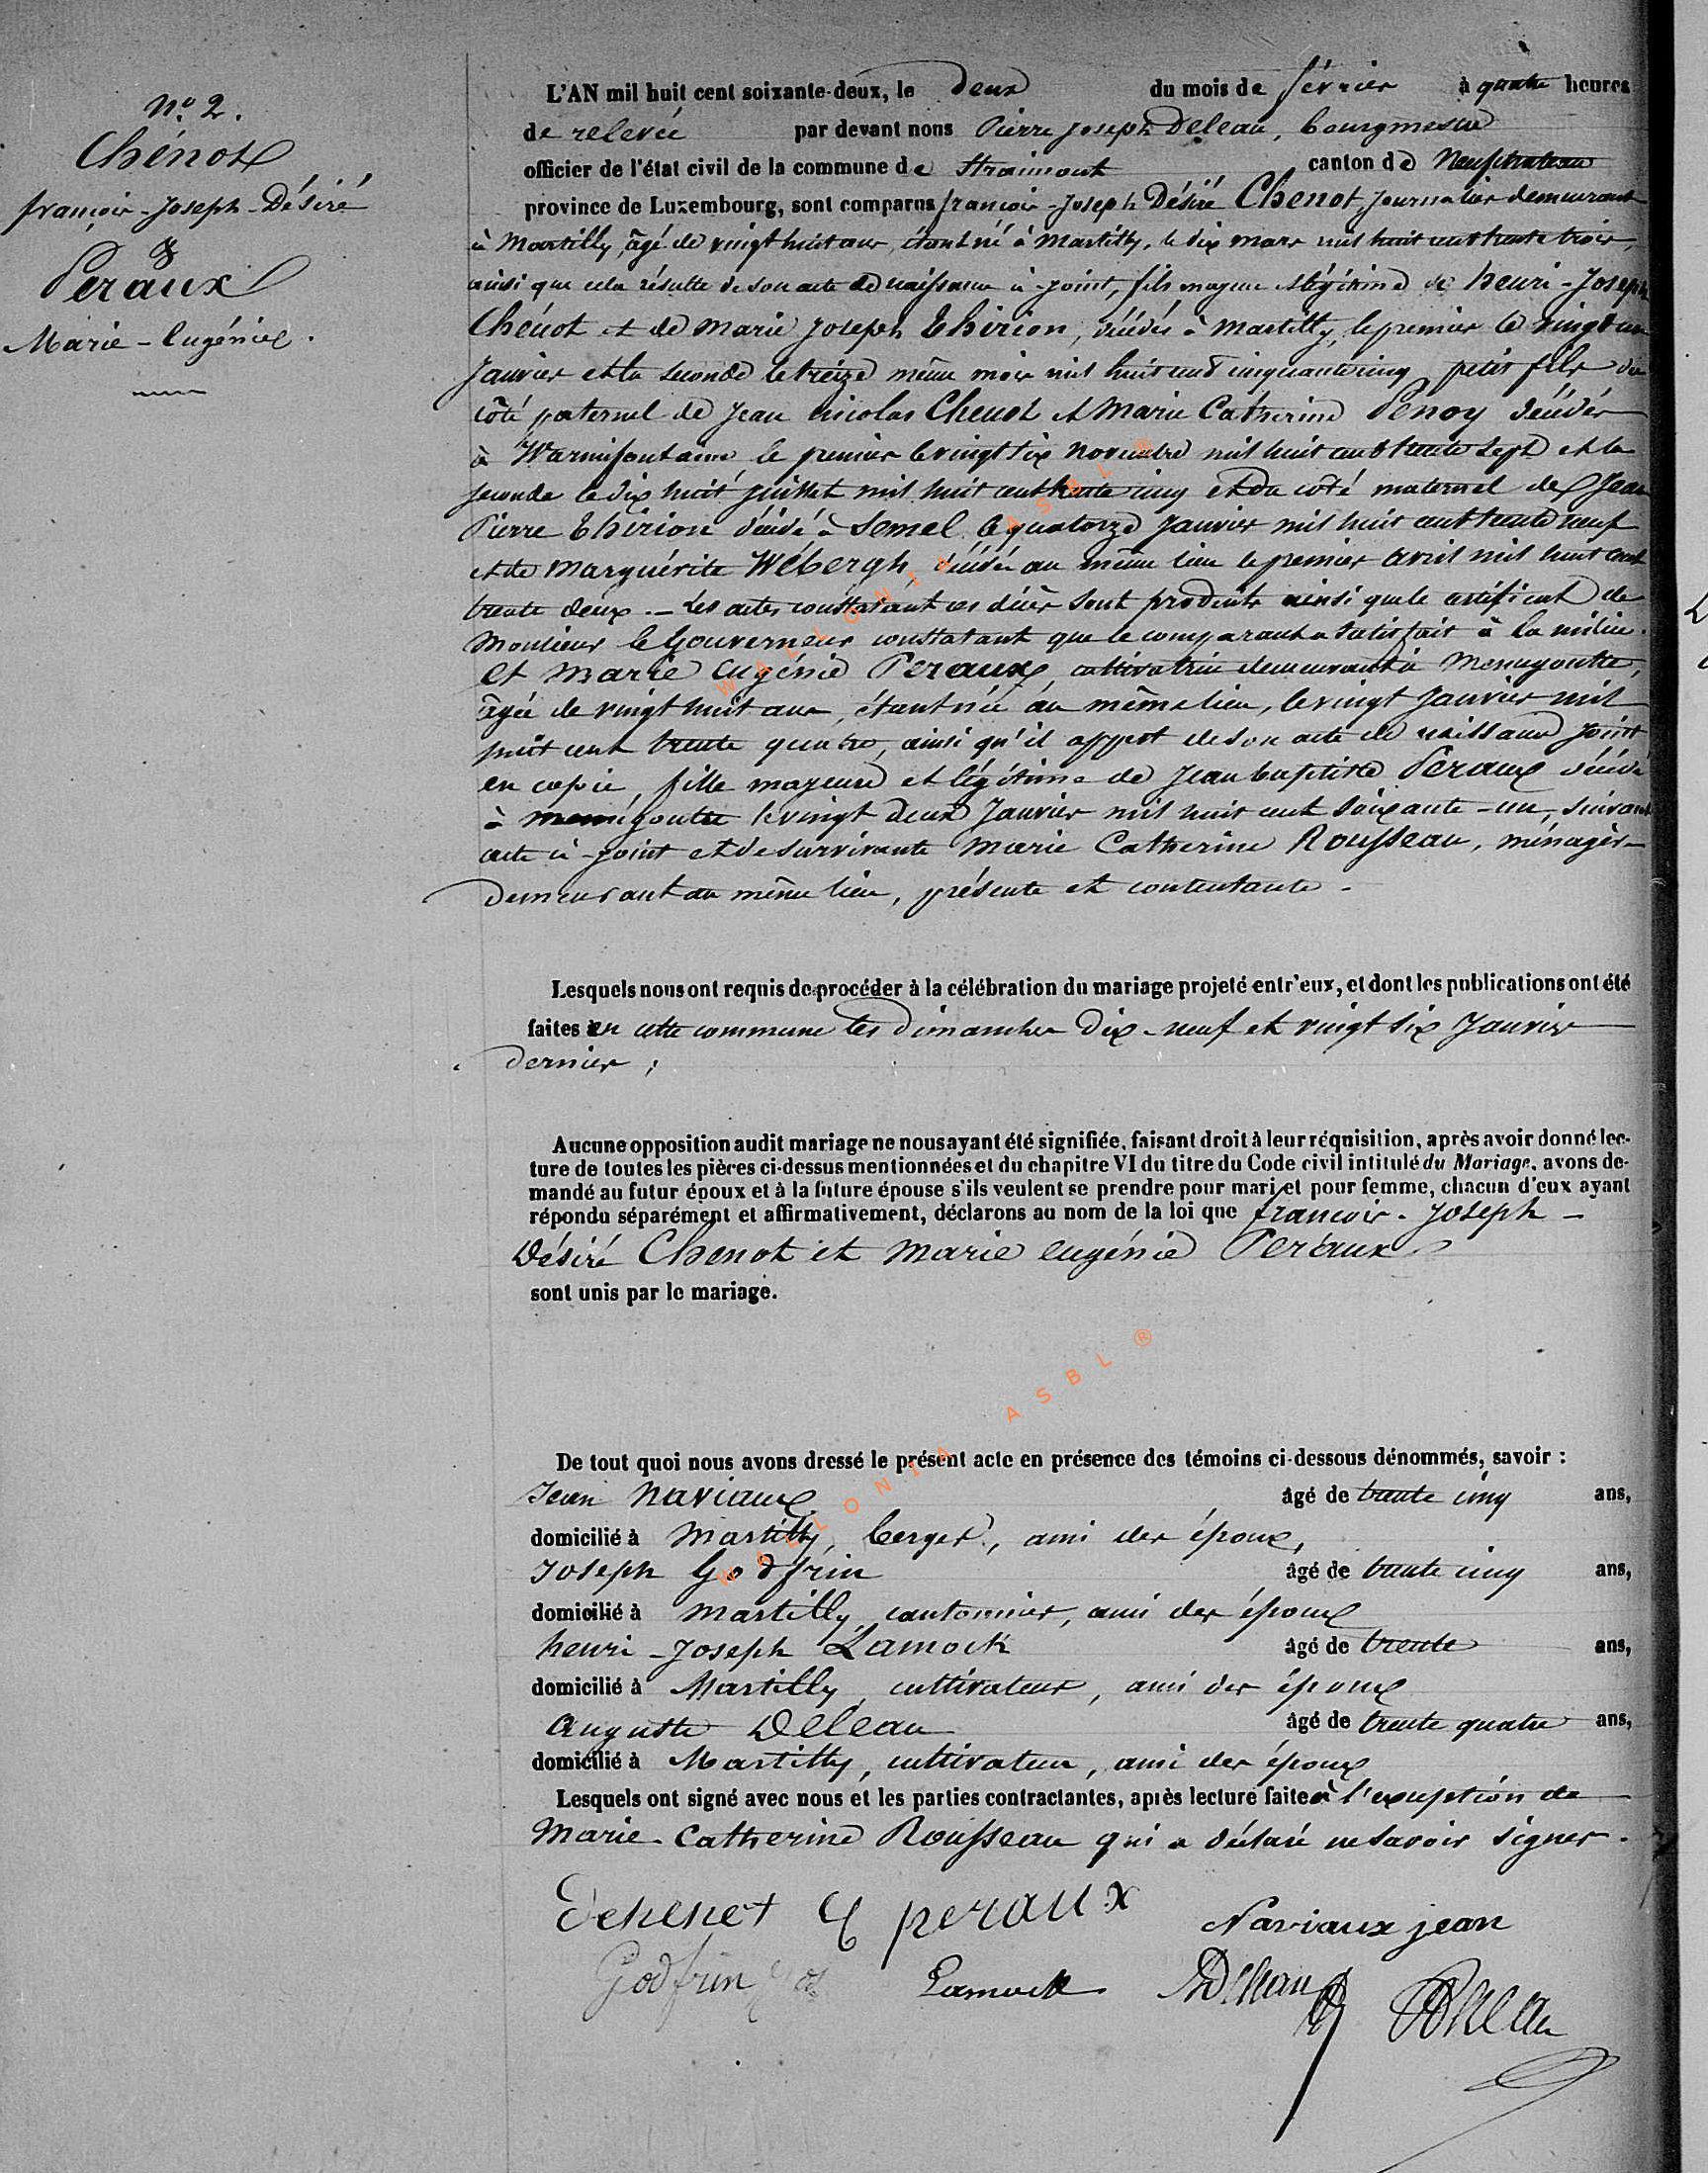 N.° 2.
Chénot
françois-Joseph-Désiré
&
Peraux
Marie-Eugénie.
L'AN mil huit cent soixante-deux, le deux du mois de février à quatre heures
de relevée par devant nous Pierre Joseph Deleau, bourgmestre
officier de l'état civil de la commune de Straimont canton de Neufchateau
province de Luxembourg, sont comparus françois-Joseph Désiré Chenot journalier demeurant
à Martilly, âgé de vingt huit ans, étant né à Martilly, le dix mars mil huit cent trente trois,
ainsi que cela résulte de son acte de naissance ci-joint, fils majeur et légitime de henri-Joseph
Chénot et de Marie Joseph Thirion, décédés à Martilly, le premier le vingt un
Janvier et la seconde le treize même mois mil huit cent cinquante cinq, petit fils du
côté paternel de Jean nicolas Chenot et Marie Catherine Penoy décédés
à Warmifontaine le premier le vingt six novembre mil huit cent trente sept et la
seconde le dix huit juillet mil huit cent trente cinq et du coté maternel de Jean
Pierre Thirion décédé à Semel le quatorze Janvier mil huit cent trente neuf
et de Marguérite Wébergh, décédée au même lieu le premier avril mil huit cent
trente deux. - Les actes constatant ces décès sont produits ainsi que le certificat de
Monsieur le Gouverneur constatant que le comparant a satisfait à la milice.
et Marie Eugénie Peraux, cultivatrice demeurant à Menugoutte,
âgée de vingt huit ans, étant née au même lieu, le vingt Janvier mil
huit cent trente quatre, ainsi qu'il appert de son acte de naissance joint
en copie, fille majeure et légitime de Jean baptiste Peraux décédé
à menugoutte le vingt deux Janvier mil huit cent soixante-un, suivant
acte ci-joint et de survivante Marie Catherine Rousseau, ménagère
demeurant au même lieu, présente et contentante -
Lesquels nous ont requis de procéder à la célébration du mariage projeté entr'eux, et dont les publications ont été
faites en cette commune les dimanches dix-neuf et vingt six Janvier
dernier ;
Aucune opposition audit mariage ne nous ayant été signifiée, faisant droit à leur réquisition, après avoir donné lec-
ture de toutes les pièces ci-dessus mentionnées et du chapitre VI du titre du Code civil intitulé du Mariage, avons de-
mandé au futur époux et à la future épouse s'ils veulent se prendre pour mari et pour femme, chacun d'eux ayant
répondu séparément et affirmativement, déclarons au nom de la loi que françois-Joseph-
Désiré Chenot et Marie eugénie Peraux
sont unis par le mariage.
De tout quoi nous avons dressé le présent acte en présence des témoins ci-dessous dénommés, savoir :
Jean Naviaux âgé de trente cinq ans,
domicilié à Martilly, berger, ami des époux,
Joseph Godfrin âgé de trente cinq ans,
domicilié à Martilly, cantonnier, ami des époux
henri-Joseph Lamock âgé de trente ans,
domicilié à Martilly, cultivateur, ami des époux
Auguste Deleau âgé de trente quatre ans,
domicilié à Martilly, cultivateur, ami des époux
Lesquels ont signé avec nous et les parties contractantes, après lecture faite à l'exception de
Marie-Catherine Rousseau qui a déclaré ne savoir signer.
peraux Naviaux jean
Godfrin Lamock ADeleau PJDeleau
WALLONIA ASBL ®
WALLONIA ASBL ®